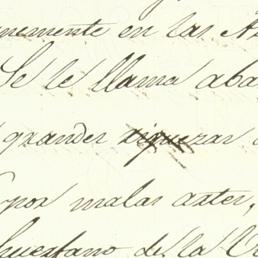 memente en las A
Se le llama aba
grandes riquezas
por malas artes,
huerfano de la V